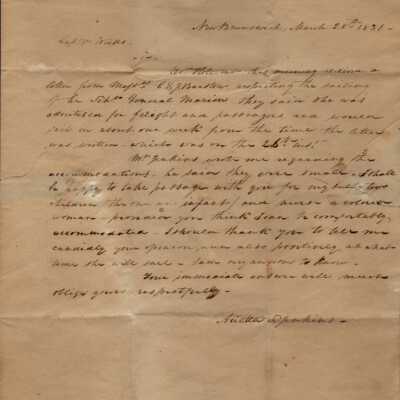 New Brunswick, March 28th 1831 -
Capt Watts
Sir
We this morning recieve a
letter from Messrs E & J Bartow respecting the sailing
of the Schr General Marion they said she was
advertised for freight and passengers and would
sail in about one week from the time the letter
was written - which was on the 26th Inst
Mr Jenkins wrote me regarding the
accommodations. he said they were small. I shall
be happy to take passage with you for myself - two
children (one an infant) and nurse a colored
woman - provided you think I can be comfortably
accommodated - I should thank you to tell me
candidly your opinion, and also positively at what
time she will sail - I am anxious to know -
Your immediate answer will much
oblige yours respectfully -
Jenkins -